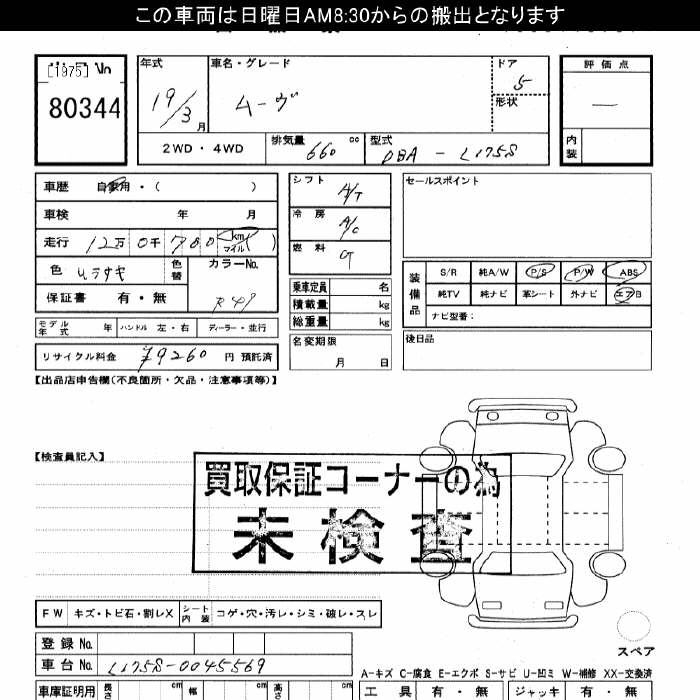 この車両は日曜日AM8:30からの搬出となります
[1975] No
80344
年式
19/3 月
車名・グレード
ムーヴ
ドア
5
形状
評価点
—
内装
2WD・4WD
排気量 660 cc
型式 DBA-L175S
車歴 自家用・( )
車検 年 月
走行 12万 0千 780 km マイル ( )
色 ムラサキ 色替
カラーNo.
保証書 有・無
モデル年式 年 ハンドル 左・右 ディーラー・並行
リサイクル料金 ¥9260 円 預託済
シフト A/T
冷房 A/C
燃料 G
乗車定員 名
積載量 kg
総重量 kg
名変期限
月 日
セールスポイント
装備品
S/R 純A/W P/S P/W ABS
純TV 純ナビ 革シート 外ナビ エアB
ナビ型番:
後日品
【出品店申告欄(不良箇所・欠品・注意事項等)】
【検査員記入】
買取保証コーナーの為
未検査
FW キズ・トビ石・割レX シート内装 コゲ・穴・汚レ・シミ・破レ・スレ
スペア
登録No.
車台No. L175S-0045569
A-キズ C-腐食 E-エクボ S-サビ U-凹ミ W-補修 XX-交換済
車庫証明用 長さ cm 幅 cm 高さ cm
工具 有・無 ジャッキ 有・無